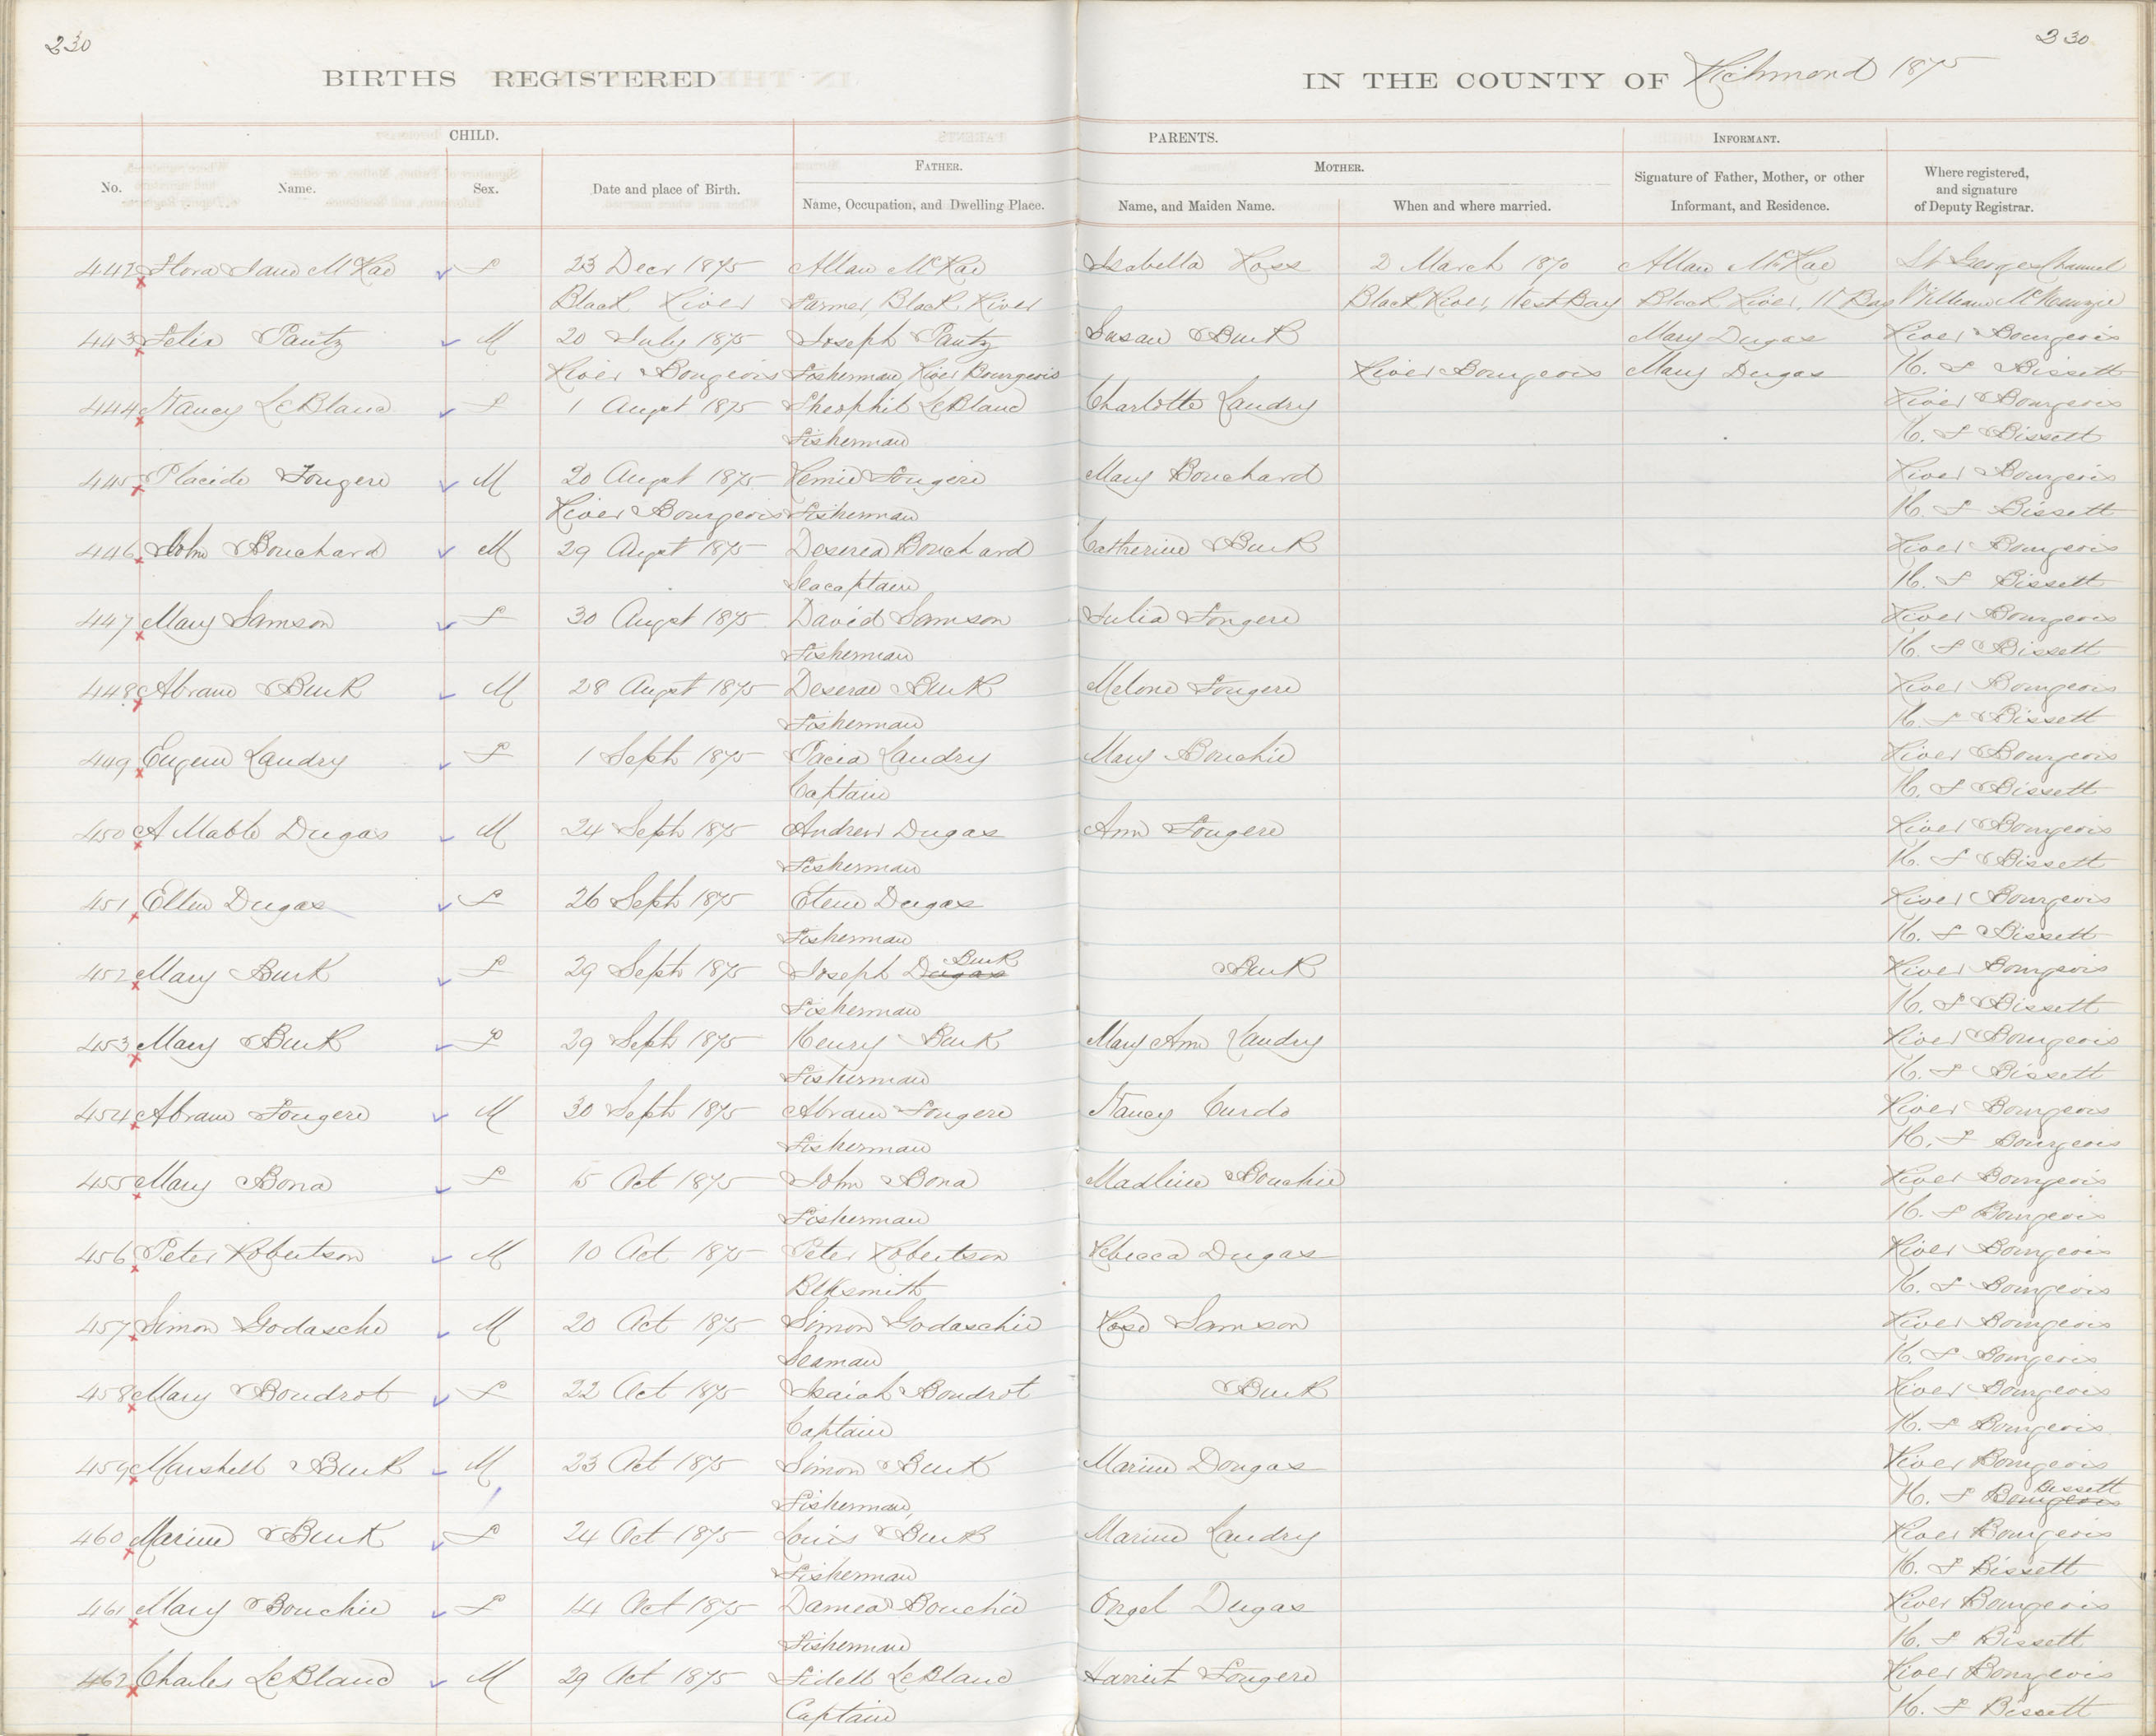 230
230
BIRTHS REGISTERED
IN THE COUNTY OF Richmond 1875
CHILD.
PARENTS.
INFORMANT.
No.
Name.
Sex.
Date and place of Birth.
FATHER.
Name, Occupation, and Dwelling Place.
MOTHER.
Name, and Maiden Name.
When and where married.
Signature of Father, Mother, or other
Informant, and Residence.
Where registered,
and signature
of Deputy Registrar.
442 Flora Jane McRae F 23 Decr 1875 Allan McRae Isabella Ross 2 March 1870 Allan McRae St Georges Channel
Black River Farmer, Black River Black River, West Bay Black River, W Bay William McKenzie
443 Felix Pautz M 20 July 1875 Joseph Pautz Susan Burk Mary Dugas River Bourgeois
River Bourgeois Fisherman, River Bourgeois River Bourgeois Mary Dugas H. F Bissett
444 Nancy LeBlanc F 1 Augst 1875 Theophil LeBlanc Charlotte Landry River Bourgeois
Fisherman H. F Bissett
445 Placide Fougere M 20 Augst 1875 Remie Fougere Mary Bouchard River Bourgeois
River Bourgeois Fisherman H. F Bissett
446 John Bouchard M 29 Augst 1875 Deserea Bouchard Catherine Burk River Bourgeois
Seacaptain H. F Bissett
447 Mary Samson F 30 Augst 1875 David Samson Julia Fougere River Bourgeois
Fisherman H. F Bissett
448 Abram Burk M 28 Augst 1875 Deserae Burk Melone Fougere River Bourgeois
Fisherman H. F Bissett
449 Eugene Landry F 1 Septr 1875 Pacia Landry Mary Bouchie River Bourgeois
Captain H. F Bissett
450 A Mable Dugas M 24 Septr 1875 Andrew Dugas Ann Fougere River Bourgeois
Fisherman H. F Bissett
451 Ellen Dugas F 26 Septr 1875 Etene Dugas River Bourgeois
Fisherman H. F Bissett
452 Mary Burk F 29 Septr 1875 Joseph Dugas Burk Burk River Bourgeois
Fisherman H. F Bissett
453 Mary Burk F 29 Septr 1875 Henry Burk Mary Ann Landry River Bourgeois
Fisherman H. F Bissett
454 Abram Fougere M 30 Septr 1875 Abram Fougere Nancy Curdo River Bourgeois
Fisherman H. F Bourgeois
455 Mary Bona F 5 Oct 1875 John Bona Madline Bouchie River Bourgeois
Fisherman H. F Bourgeois
456 Peter Robertson M 10 Oct 1875 Peter Robertson Rebecca Dugas River Bourgeois
Blksmith H. F Bourgeois
457 Simon Godasche M 20 Oct 1875 Simon Godaschie Rose Samson River Bourgeois
Seaman H. F Bourgeois
458 Mary Boudrot F 22 Oct 1875 Isaiah Boudrot Burk River Bourgeois
Captain H. F Bourgeois
459 Marshell Burk M 23 Oct 1875 Simon Burk Marine Dougas River Bourgeois
Fisherman, H. F Bourgeois Bissett
460 Marine Burk F 24 Oct 1875 Louis Burk Marine Landry River Bourgeois
Fisherman H. F Bissett
461 Mary Bouchie F 14 Oct 1875 Damea Bouchie Orgel Dugas River Bourgeois
Fisherman H. F Bissett
462 Charles LeBlanc M 29 Oct 1875 Fidell LeBlanc Harriet Fougere River Bourgeois
Captain H. F Bissett